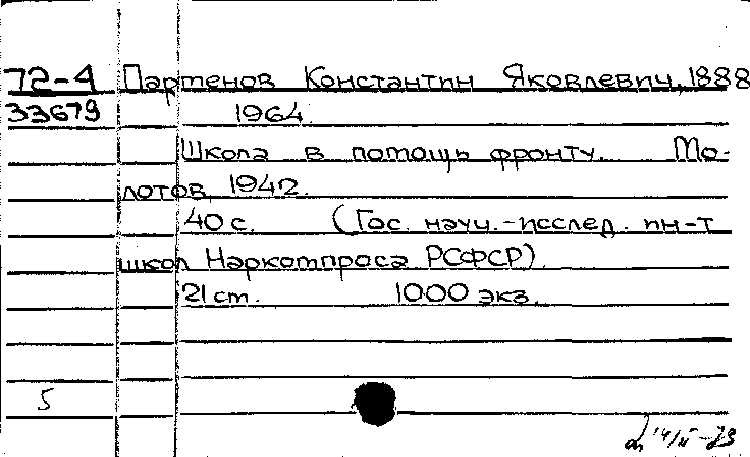 72-4 Партенов Константин Яковлевич, 1888
33679 1964.
Школа в помощь фронту. Мо-
лотов, 1942.
40 с. (Гос. научн.-исслед. ин-т
школ Наркомпроса РСФСР).
21 см. 1000 экз.
5